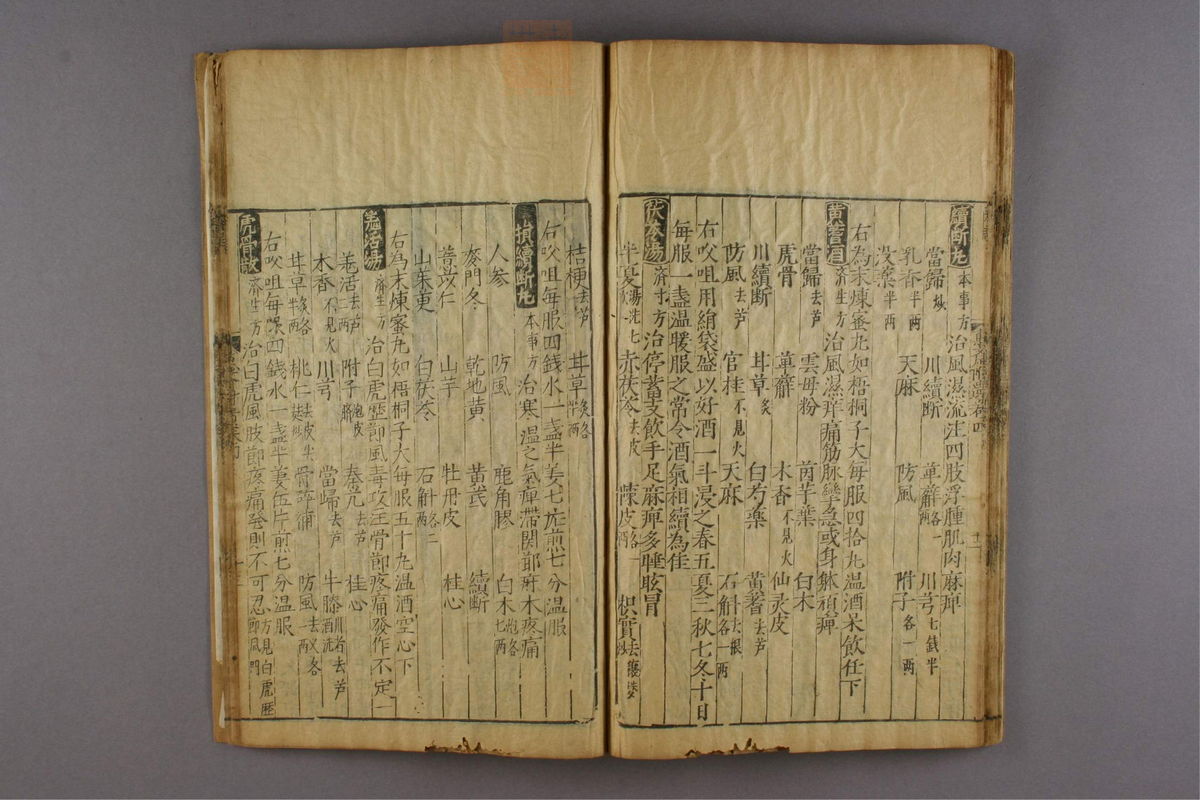 續断丸 本事方 治風濕流注四肢浮腫肌肉麻痺
當歸炒 川續断 萆薢各一兩 川芎七錢半
乳香半两 天麻 防風 附子各一两
没藥半两
右為末煉蜜丸如梧桐子大每服四拾丸温酒米飲任下
黄蓍酒 濟生方 治風濕痺痛筋脉攣急或身躰頑痺
當歸去芦 雲母粉 茵芋葉 白木
虎骨 萆薢 木香不見火 仙灵皮
川續断 甘草炙 白芍藥 黄蓍去芦
防風去芦 官桂不見火 天麻 石斛去根各一两
右㕮咀用絹袋盛以好酒一斗浸之春五夏三秋七冬十日
每服一盞温暖服之常令酒氣相續為佳
茯苓湯 濟生方 治停蓄支飲手足麻痺多睡眩冒
半夏湯洗七次 赤茯苓去皮 陳皮各一两 枳實去穰
桔梗去芦 甘草炙各半两
右㕮咀每服四錢水一盞半姜七片煎七分温服
損續断丸 本事方 治寒温之氣痺滯関節麻木疼痛
人参 防風 鹿角膠 白木炮各七两
麥門冬 乾地黄 黄芪 續断
薏苡仁 山芋 牡丹皮 桂心
山茱萸 白茯苓 石斛各二两
右為末煉蜜丸如梧桐子大每服五十丸温酒空心下
羗活湯 濟生方 治白虎歷節風毒攻注骨節疼痛發作不定
羗活去芦二两 附子炮去皮臍 秦艽去芦 桂心
木香不見火 川芎 當歸去芦 牛膝川者去芦酒洗
甘草炙各半两 桃仁去皮尖 骨碎補 防風去叉各一两
右㕮咀每服四錢水一盞半姜伍片煎七分温服
虎骨散 濟生方 治白虎風肢節疼痛發則不可忍方見白虎歷節風門